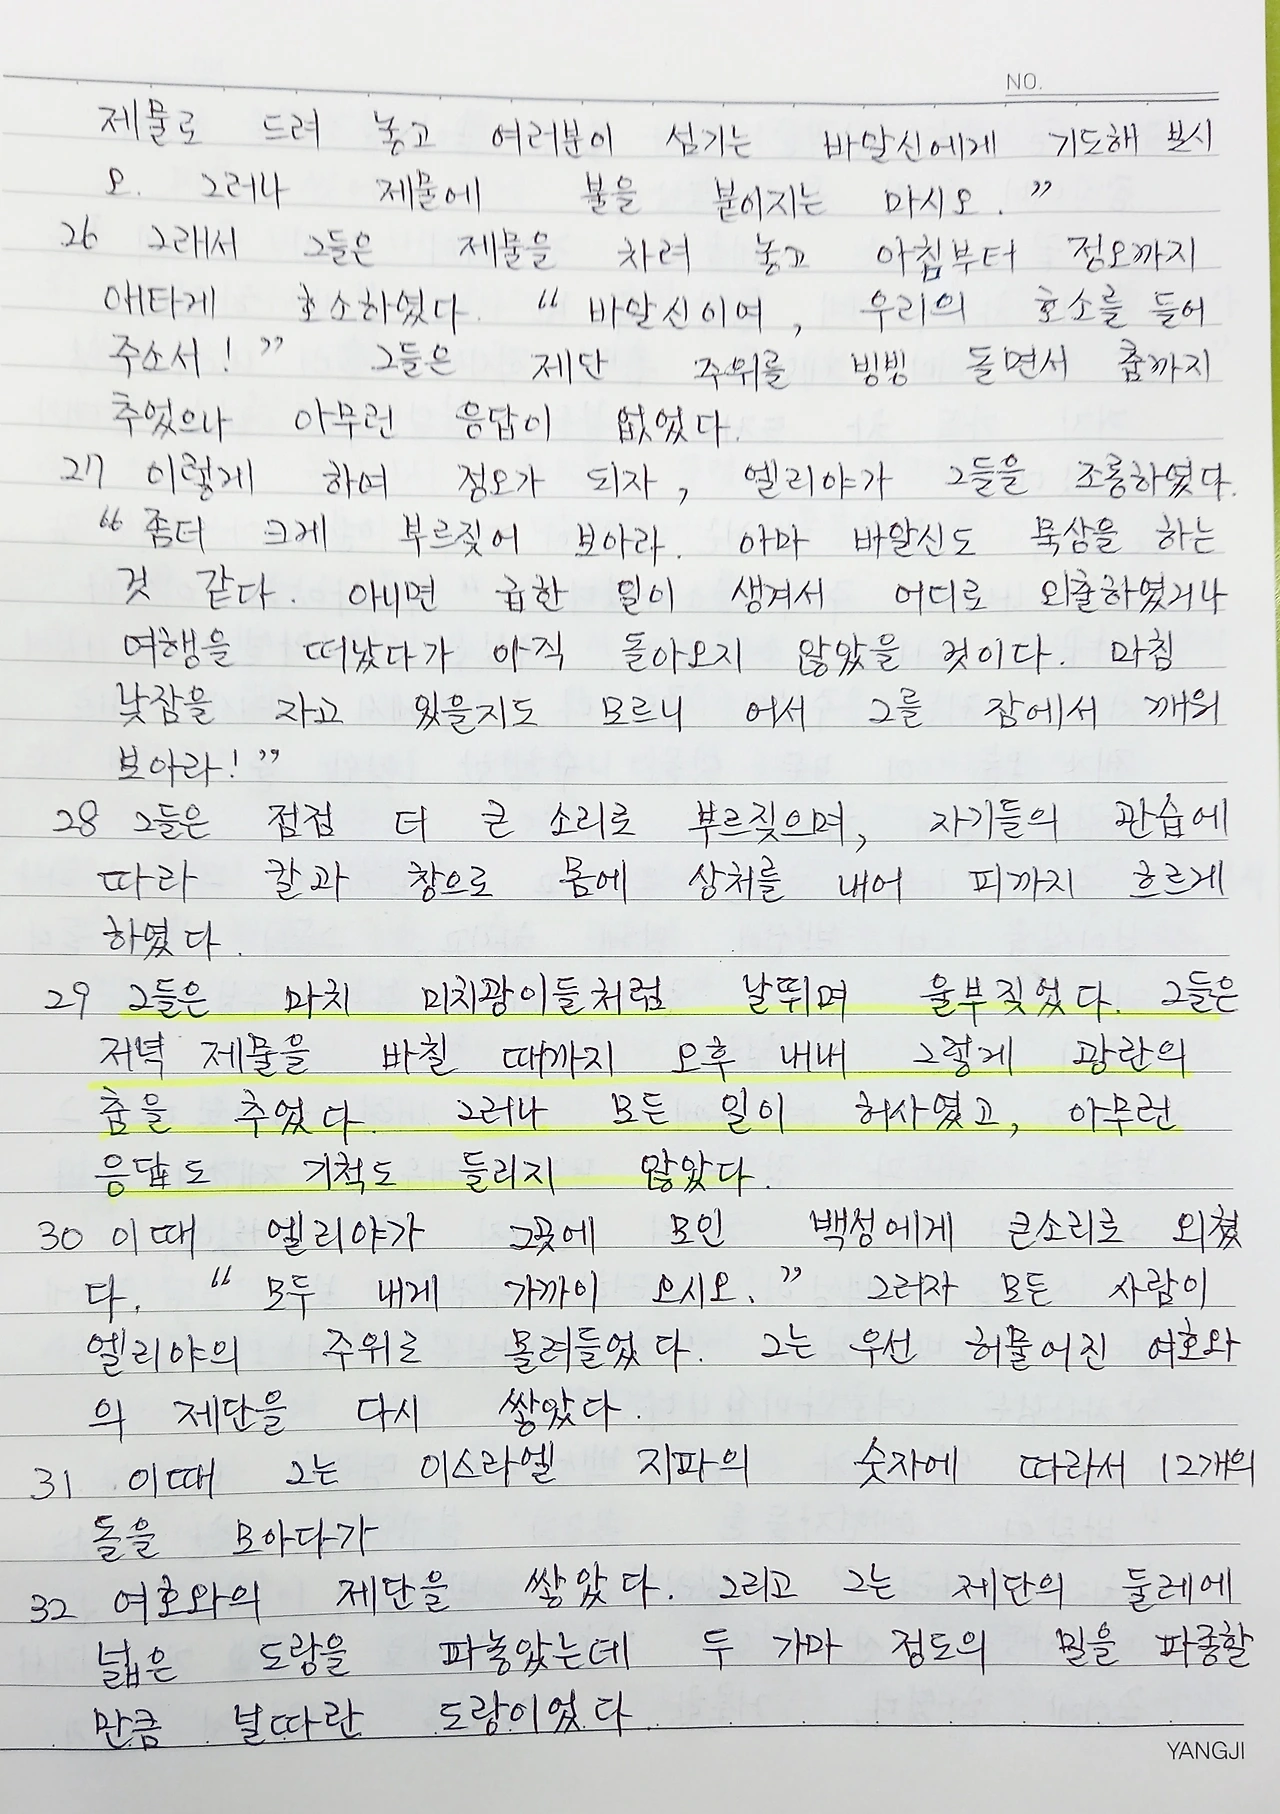 NO.
제물로 드려 놓고 여러분이 섬기는 바알신에게 기도해 보시
오. 그러나 제물에 불을 붙이지는 마시오."
26 그래서 그들은 제물을 차려 놓고 아침부터 정오까지
애타게 호소하였다. "바알신이여, 우리의 호소를 들어
주소서!" 그들은 제단 주위를 빙빙 돌면서 춤까지
추었으나 아무런 응답이 없었다.
27 이렇게 하여 정오가 되자, 엘리야가 그들을 조롱하였다.
"좀더 크게 부르짖어 보아라. 아마 바알신도 묵상을 하는
것 같다. 아니면 급한 일이 생겨서 어디로 외출하였거나
여행을 떠났다가 아직 돌아오지 않았을 것이다. 마침
낮잠을 자고 있을지도 모르니 어서 그를 잠에서 깨워
보아라!"
28 그들은 점점 더 큰 소리로 부르짖으며, 자기들의 관습에
따라 칼과 창으로 몸에 상처를 내어 피까지 흐르게
하였다.
29 그들은 마치 미치광이들처럼 날뛰며 울부짖었다. 그들은
저녁 제물을 바칠 때까지 오후 내내 그렇게 광란의
춤을 추었다. 그러나 모든 일이 허사였고, 아무런
응답도 기척도 들리지 않았다.
30 이때 엘리야가 그곳에 모인 백성에게 큰소리로 외쳤
다. "모두 내게 가까이 오시오." 그러자 모든 사람이
엘리야의 주위로 몰려들었다. 그는 우선 허물어진 여호와
의 제단을 다시 쌓았다.
31 이때 그는 이스라엘 지파의 숫자에 따라서 12개의
돌을 모아다가
32 여호와의 제단을 쌓았다. 그리고 그는 제단의 둘레에
넓은 도랑을 파놓았는데 두 가마 정도의 밀을 파종할
만큼 널따란 도랑이었다
YANGJI